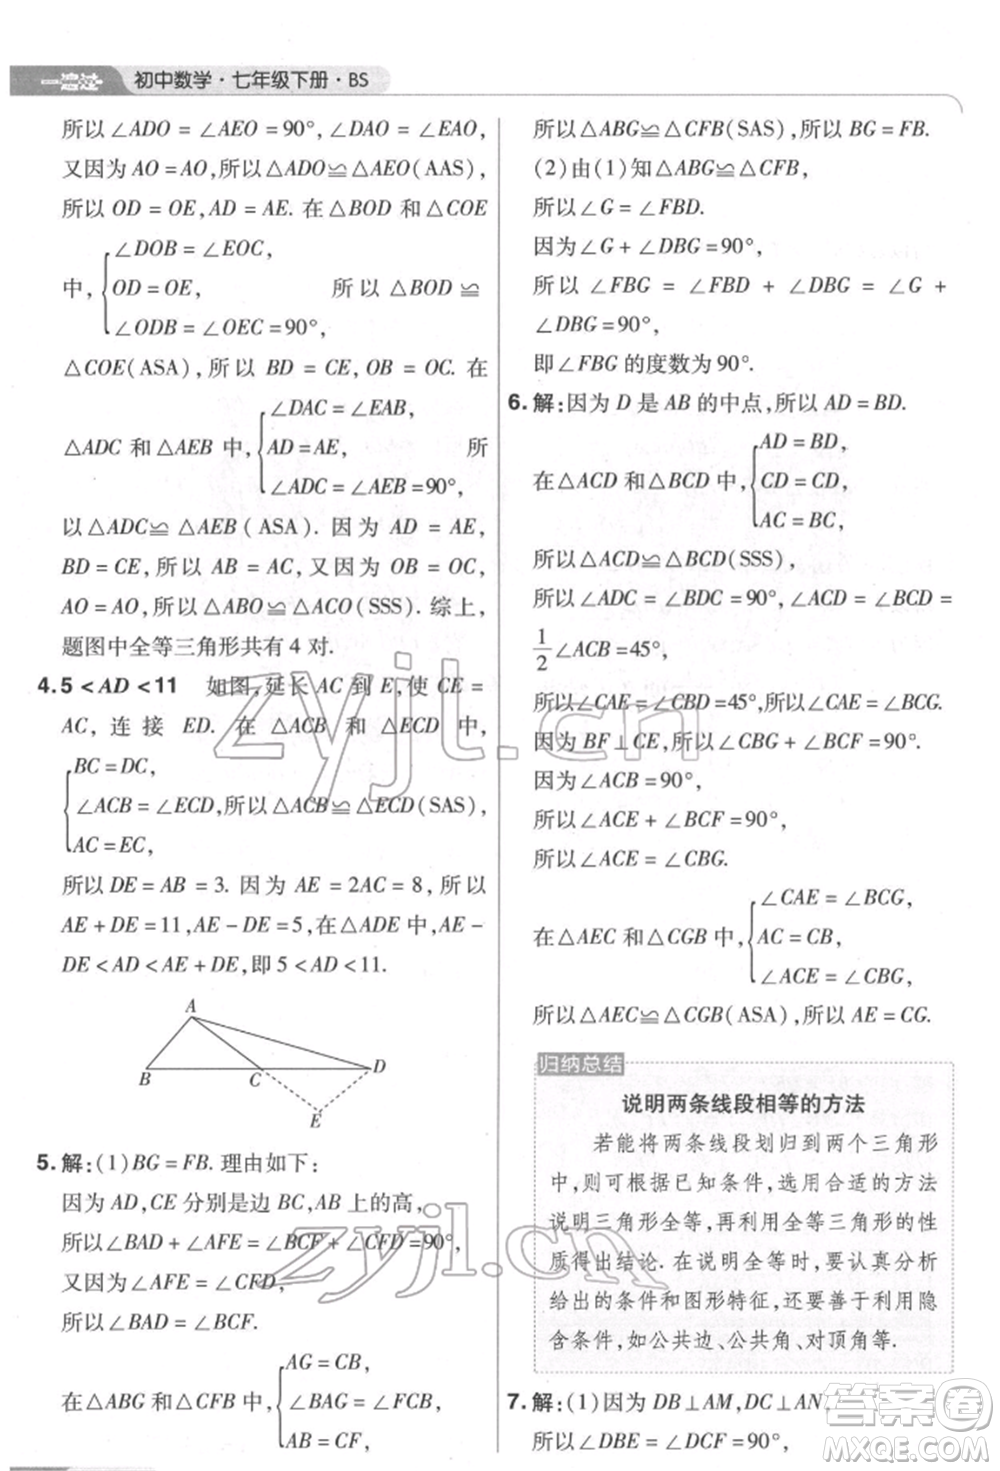 一遍过 初中数学·七年级下册·BS
所以∠ADO=∠AEO=90°,∠DAO=∠EAO,
又因为AO=AO,所以△ADO≌△AEO(AAS),
所以OD=OE,AD=AE. 在△BOD和△COE
∠DOB=∠EOC,
中, OD=OE, 所以△BOD≌
∠ODB=∠OEC=90°,
△COE(ASA),所以BD=CE,OB=OC. 在
∠DAC=∠EAB,
△ADC和△AEB中, AD=AE, 所
∠ADC=∠AEB=90°,
以△ADC≌△AEB(ASA). 因为AD=AE,
BD=CE,所以AB=AC,又因为OB=OC,
AO=AO,所以△ABO≌△ACO(SSS). 综上,
题图中全等三角形共有4对.
4. 5<AD<11 如图,延长AC到E,使CE=
AC,连接ED. 在△ACB和△ECD中,
BC=DC,
∠ACB=∠ECD,所以△ACB≌△ECD(SAS),
AC=EC,
所以DE=AB=3. 因为AE=2AC=8,所以
AE+DE=11,AE-DE=5,在△ADE中,AE-
DE<AD<AE+DE,即5<AD<11.
A
B C D
E
5. 解:(1)BG=FB. 理由如下:
因为AD,CE分别是边BC,AB上的高,
所以∠BAD+∠AFE=∠BCF+∠CFD=90°,
又因为∠AFE=∠CFD,
所以∠BAD=∠BCF.
AG=CB,
在△ABG和△CFB中, ∠BAG=∠FCB,
AB=CF,
所以△ABG≌△CFB(SAS),所以BG=FB.
(2)由(1)知△ABG≌△CFB,
所以∠G=∠FBD.
因为∠G+∠DBG=90°,
所以∠FBG=∠FBD+∠DBG=∠G+
∠DBG=90°,
即∠FBG的度数为90°.
6. 解:因为D是AB的中点,所以AD=BD.
AD=BD,
在△ACD和△BCD中, CD=CD,
AC=BC,
所以△ACD≌△BCD(SSS),
所以∠ADC=∠BDC=90°,∠ACD=∠BCD=
1/2∠ACB=45°,
所以∠CAE=∠CBD=45°,所以∠CAE=∠BCG.
因为BF⊥CE,所以∠CBG+∠BCF=90°.
因为∠ACB=90°,
所以∠ACE+∠BCF=90°,
所以∠ACE=∠CBG.
∠CAE=∠BCG,
在△AEC和△CGB中, AC=CB,
∠ACE=∠CBG,
所以△AEC≌△CGB(ASA),所以AE=CG.
归纳总结
说明两条线段相等的方法
若能将两条线段划归到两个三角形
中,则可根据已知条件,选用合适的方法
说明三角形全等,再利用全等三角形的性
质得出结论. 在说明全等时,要认真分析
给出的条件和图形特征,还要善于利用隐
含条件,如公共边、公共角、对顶角等.
7. 解:(1)因为DB⊥AM,DC⊥AN,
所以∠DBE=∠DCF=90°,
zyjl.cn
zyjl.cn
答案圈
MXQE.COM